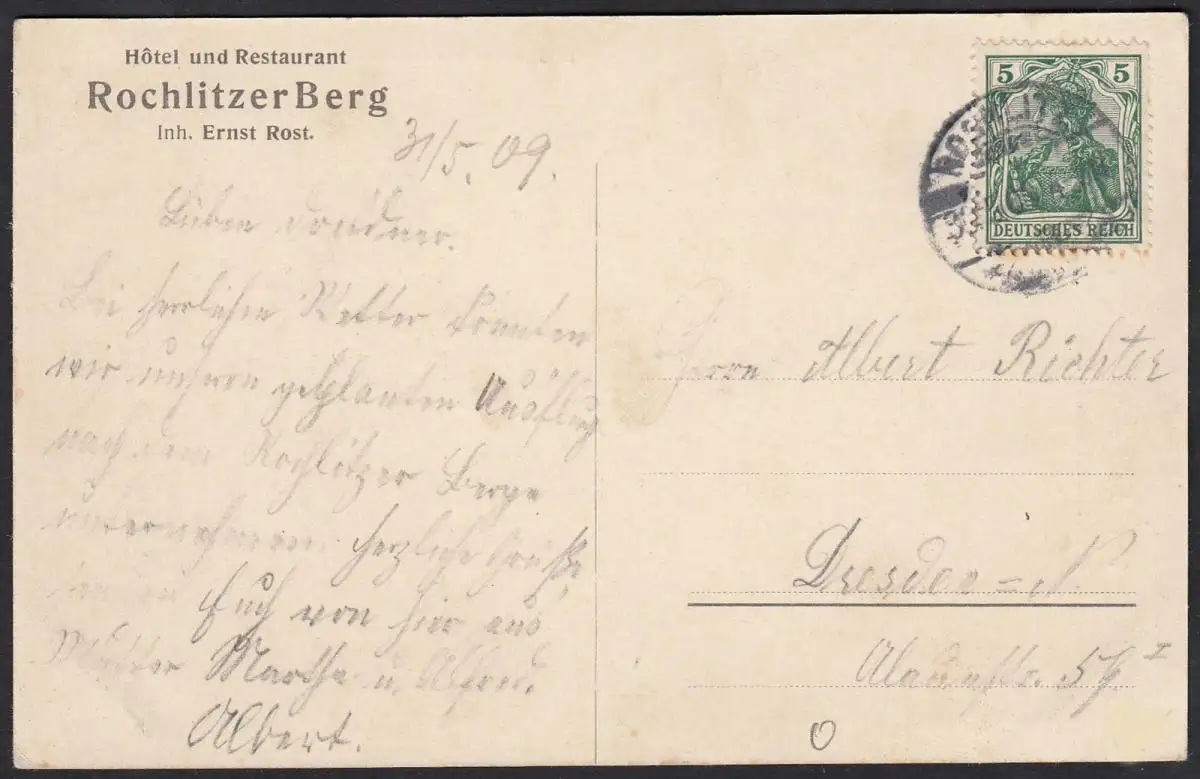 Hôtel und Restaurant
Rochlitzer Berg
Inh. Ernst Rost.
31/5. 09.
Lieben Dresdner.
Bei herrlichem Wetter konnten
wir unseren geplanten Ausflug
nach dem Rochlitzer Berge
unternehmen. Herzliche Grüße
senden Euch von hier aus
Mutter Martha u. Alfred.
Albert.
5 5
DEUTSCHES REICH
ROCHLITZ
Herrn Albert Richter
Dresden=N.
I
0